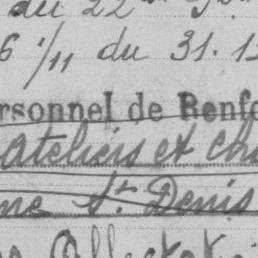 au 22
6 1/11 du 31.12
ersonnel de Renfo
ateliers et ch
me St. Denis
Affectati